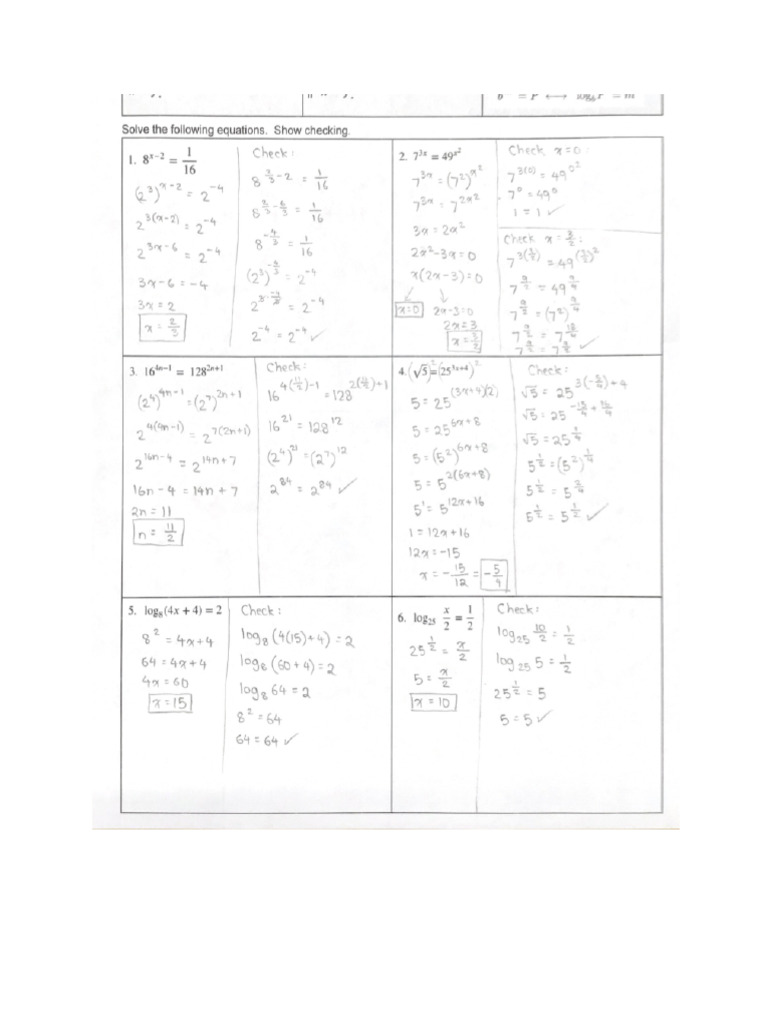 Solve the following equations. Show checking.
1. 8^{x-2} = 1/16
(2^3)^{x-2} = 2^{-4}
2^{3(x-2)} = 2^{-4}
2^{3x-6} = 2^{-4}
3x-6 = -4
3x = 2
x = 2/3
Check:
8^{2/3 - 2} = 1/16
8^{2/3 - 6/3} = 1/16
8^{-4/3} = 1/16
(2^3)^{-4/3} = 2^{-4}
2^{3·-4/3} = 2^{-4}
2^{-4} = 2^{-4} ✓
2. 7^{3x} = 49^{x^2}
7^{3x} = (7^2)^{x^2}
7^{3x} = 7^{2x^2}
3x = 2x^2
2x^2-3x = 0
x(2x-3) = 0
x=0 2x-3=0
2x=3
x = 3/2
Check x=0:
7^{3(0)} = 49^{0^2}
7^0 = 49^0
1 = 1 ✓
Check x = 3/2:
7^{3(3/2)} = 49^{(3/2)^2}
7^{9/2} = 49^{9/4}
7^{9/2} = (7^2)^{9/4}
7^{9/2} = 7^{18/4}
7^{9/2} = 7^{9/2} ✓
3. 16^{4n-1} = 128^{2n+1}
(2^4)^{4n-1} = (2^7)^{2n+1}
2^{4(4n-1)} = 2^{7(2n+1)}
2^{16n-4} = 2^{14n+7}
16n-4 = 14n+7
2n = 11
n = 11/2
Check:
16^{4(11/2)-1} = 128^{2(11/2)+1}
16^{21} = 128^{12}
(2^4)^{21} = (2^7)^{12}
2^{84} = 2^{84} ✓
4. (√5)^2 = (25^{3x+4})^2
5 = 25^{(3x+4)(2)}
5 = 25^{6x+8}
5 = (5^2)^{6x+8}
5 = 5^{2(6x+8)}
5^1 = 5^{12x+16}
1 = 12x+16
12x = -15
x = -15/12 = -5/4
Check:
√5 = 25^{3(-5/4)+4}
√5 = 25^{-15/4 + 16/4}
√5 = 25^{1/4}
5^{1/2} = (5^2)^{1/4}
5^{1/2} = 5^{2/4}
5^{1/2} = 5^{1/2} ✓
5. log_8(4x + 4) = 2
8^2 = 4x+4
64 = 4x+4
4x = 60
x = 15
Check:
log_8(4(15)+4) = 2
log_8(60+4) = 2
log_8 64 = 2
8^2 = 64
64 = 64 ✓
6. log_25 x/2 = 1/2
25^{1/2} = x/2
5 = x/2
x = 10
Check:
log_25 10/2 = 1/2
log_25 5 = 1/2
25^{1/2} = 5
5 = 5 ✓